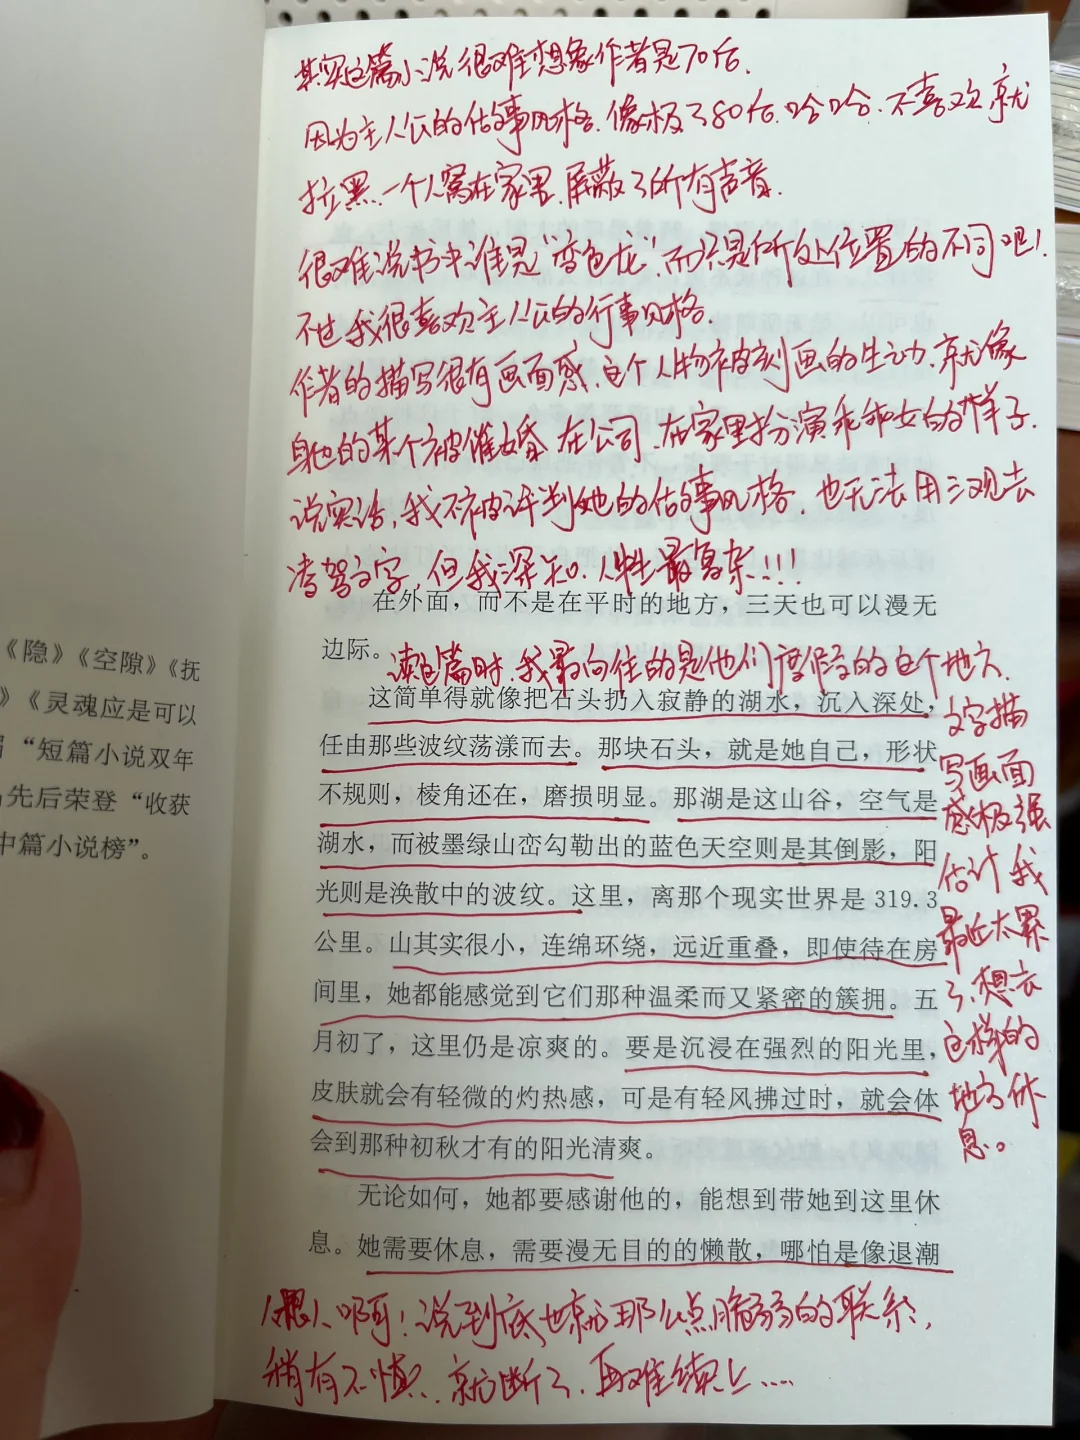 《隐》《空隙》《抚
》《灵魂应是可以
“短篇小说双年
先后荣登“收获
中篇小说榜”。
其实这篇小说很难想象作者是70后.
因为主人公的估事风格.像极了80后.哈哈.不喜欢就
拉黑.一个人窝在家里.屏蔽了所有声音.
很难说书中谁是“变色龙”而只是所处位置的不同吧!
不过我很喜欢主人公的行事风格.
作者的描写很有画面感.这个人物被刻画的生动.就像
身边的某个被催婚.在公司.在家里扮演乖乖女的样子.
说实话,我不评判她的估事风格.也无法用三观去
凌驾文字,但我深知.人性最复杂!!!
在外面，而不是在平时的地方，三天也可以漫无
边际。
读这篇时.我最向往的是他们度假的这个地方.
文字描
写画面
感极强
估计我
最近太累
了,想去
这样的
地方休
息。
这简单得就像把石头扔入寂静的湖水，沉入深处，
任由那些波纹荡漾而去。那块石头，就是她自己，形状
不规则，棱角还在，磨损明显。那湖是这山谷，空气是
湖水，而被墨绿山峦勾勒出的蓝色天空则是其倒影，阳
光则是涣散中的波纹。这里，离那个现实世界是 319.3
公里。山其实很小，连绵环绕，远近重叠，即使待在房
间里，她都能感觉到它们那种温柔而又紧密的簇拥。五
月初了，这里仍是凉爽的。要是沉浸在强烈的阳光里，
皮肤就会有轻微的灼热感，可是有轻风拂过时，就会体
会到那种初秋才有的阳光清爽。
无论如何，她都要感谢他的，能想到带她到这里休
息。她需要休息，需要漫无目的的懒散，哪怕是像退潮
人跟人啊!说到底,也就那么点脆弱的联系,
稍有不慎.就断了.再难续上....